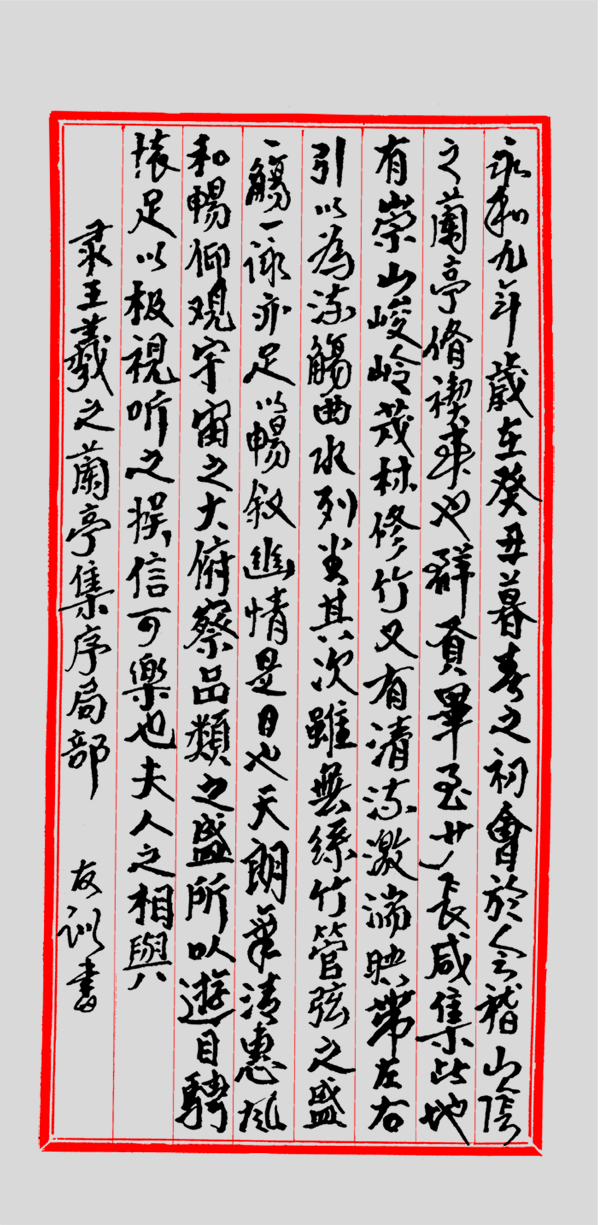 永和九年歲在癸丑暮春之初會於会稽山陰
之蘭亭脩禊事也群賢畢至少長咸集此地
有崇山峻岭茂林修竹又有清流激湍映带左右
引以為流觴曲水列坐其次雖無絲竹管弦之盛
一觴一詠亦足以暢叙幽情是日也天朗氣清惠風
和暢仰观宇宙之大俯察品類之盛所以遊目騁
懷足以极視听之娱信可樂也夫人之相與
录王羲之蘭亭集序局部 友训書